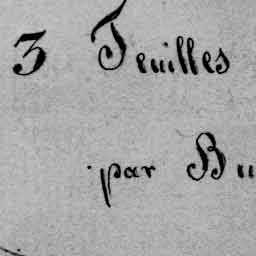 3 Feuilles
par Bu